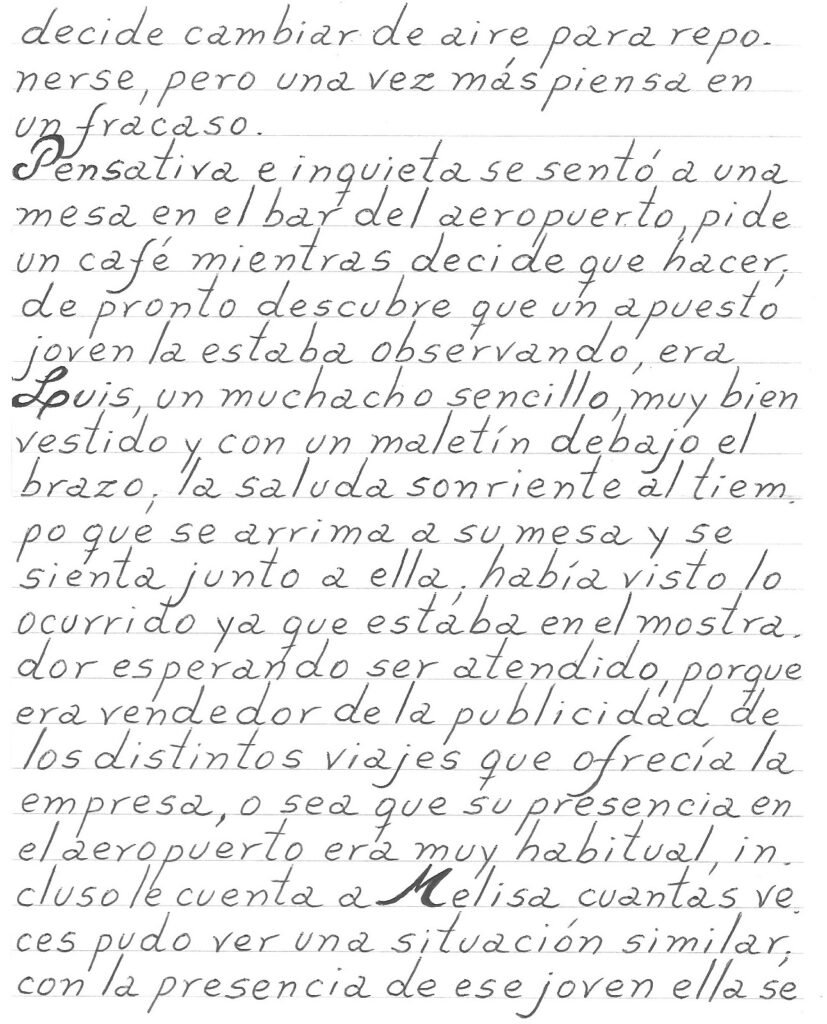 decide cambiar de aire para repo-
nerse, pero una vez más piensa en
un fracaso.
Pensativa e inquieta se sentó a una
mesa en el bar del aeropuerto, pide
un café mientras decide que hacer,
de pronto descubre que un apuesto
joven la estaba observando, era
Luis, un muchacho sencillo, muy bien
vestido y con un maletín debajo el
brazo, la saluda sonriente al tiem-
po que se arrima a su mesa y se
sienta junto a ella, había visto lo
ocurrido ya que estaba en el mostra-
dor esperando ser atendido, porque
era vendedor de la publicidad de
los distintos viajes que ofrecía la
empresa, o sea que su presencia en
el aeropuerto era muy habitual, in-
cluso le cuenta a Melisa cuantas ve-
ces pudo ver una situación similar,
con la presencia de ese joven ella se